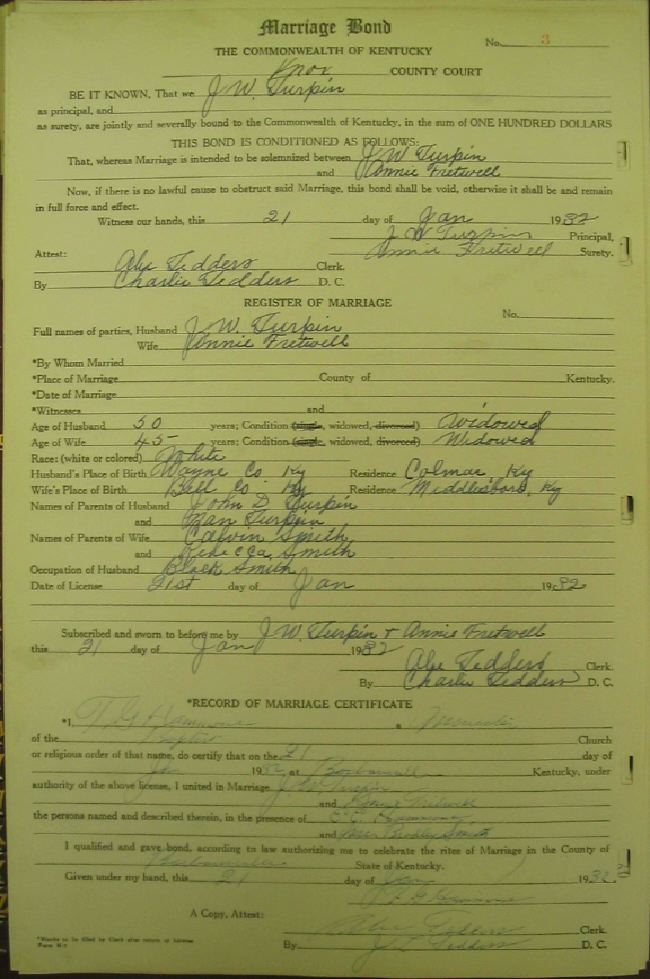 Marriage Bond
No. 3
THE COMMONWEALTH OF KENTUCKY
Knox COUNTY COURT
BE IT KNOWN, That we J. W. Turpin
as principal, and
as surety, are jointly and severally bound to the Commonwealth of Kentucky, in the sum of ONE HUNDRED DOLLARS
THIS BOND IS CONDITIONED AS FOLLOWS:
That, whereas Marriage is intended to be solemnized between J W Turpin
and Annie Fretwell
Now, if there is no lawful cause to obstruct said Marriage, this bond shall be void, otherwise it shall be and remain
in full force and effect.
Witness our hands, this 21 day of Jan 1932
J. W Turpin Principal,
Annie Fretwell Surety.
Attest:
Abe Tedders Clerk.
By Charlie Tedders D. C.
REGISTER OF MARRIAGE
No.
Full names of parties, Husband J. W. Turpin
Wife Annie Fretwell
*By Whom Married
*Place of Marriage County of Kentucky.
*Date of Marriage
*Witnesses and
Age of Husband 50 years; Condition (single, widowed, divorced) Widowed
Age of Wife 45 years; Condition (single, widowed, divorced) Widowed
Race: (white or colored) White
Husband's Place of Birth Wayne Co. Ky Residence Colmar, Ky
Wife's Place of Birth Bell Co. Ky Residence Middlesboro, Ky
Names of Parents of Husband John D Turpin
and Nan Turpin
Names of Parents of Wife Calvin Smith
and Rebecca Smith
Occupation of Husband Black Smith
Date of License 21st day of Jan 1932
Subscribed and sworn to before me by J. W. Turpin & Annie Fretwell
this 21 day of Jan 1932
Abe Tedders Clerk.
By Charlie Tedders D. C.
*RECORD OF MARRIAGE CERTIFICATE
*I, T. G. Hammons a Minister
of the Baptist Church
or religious order of that name, do certify that on the 21 day of
Jan 1932, at Barbourville Kentucky, under
authority of the above license, I united in Marriage J. W Turpin
and Annie Fretwell
the persons named and described therein, in the presence of C. C. Hammons
and Smith
I qualified and gave bond, according to law authorizing me to celebrate the rites of Marriage in the County of
Barbourville State of Kentucky.
Given under my hand, this 21 day of Jan 1932
T. G. Hammons
A Copy, Attest:
Abe Tedders Clerk.
By Tedders D. C.
*Blanks to be filled by Clerk after return of License